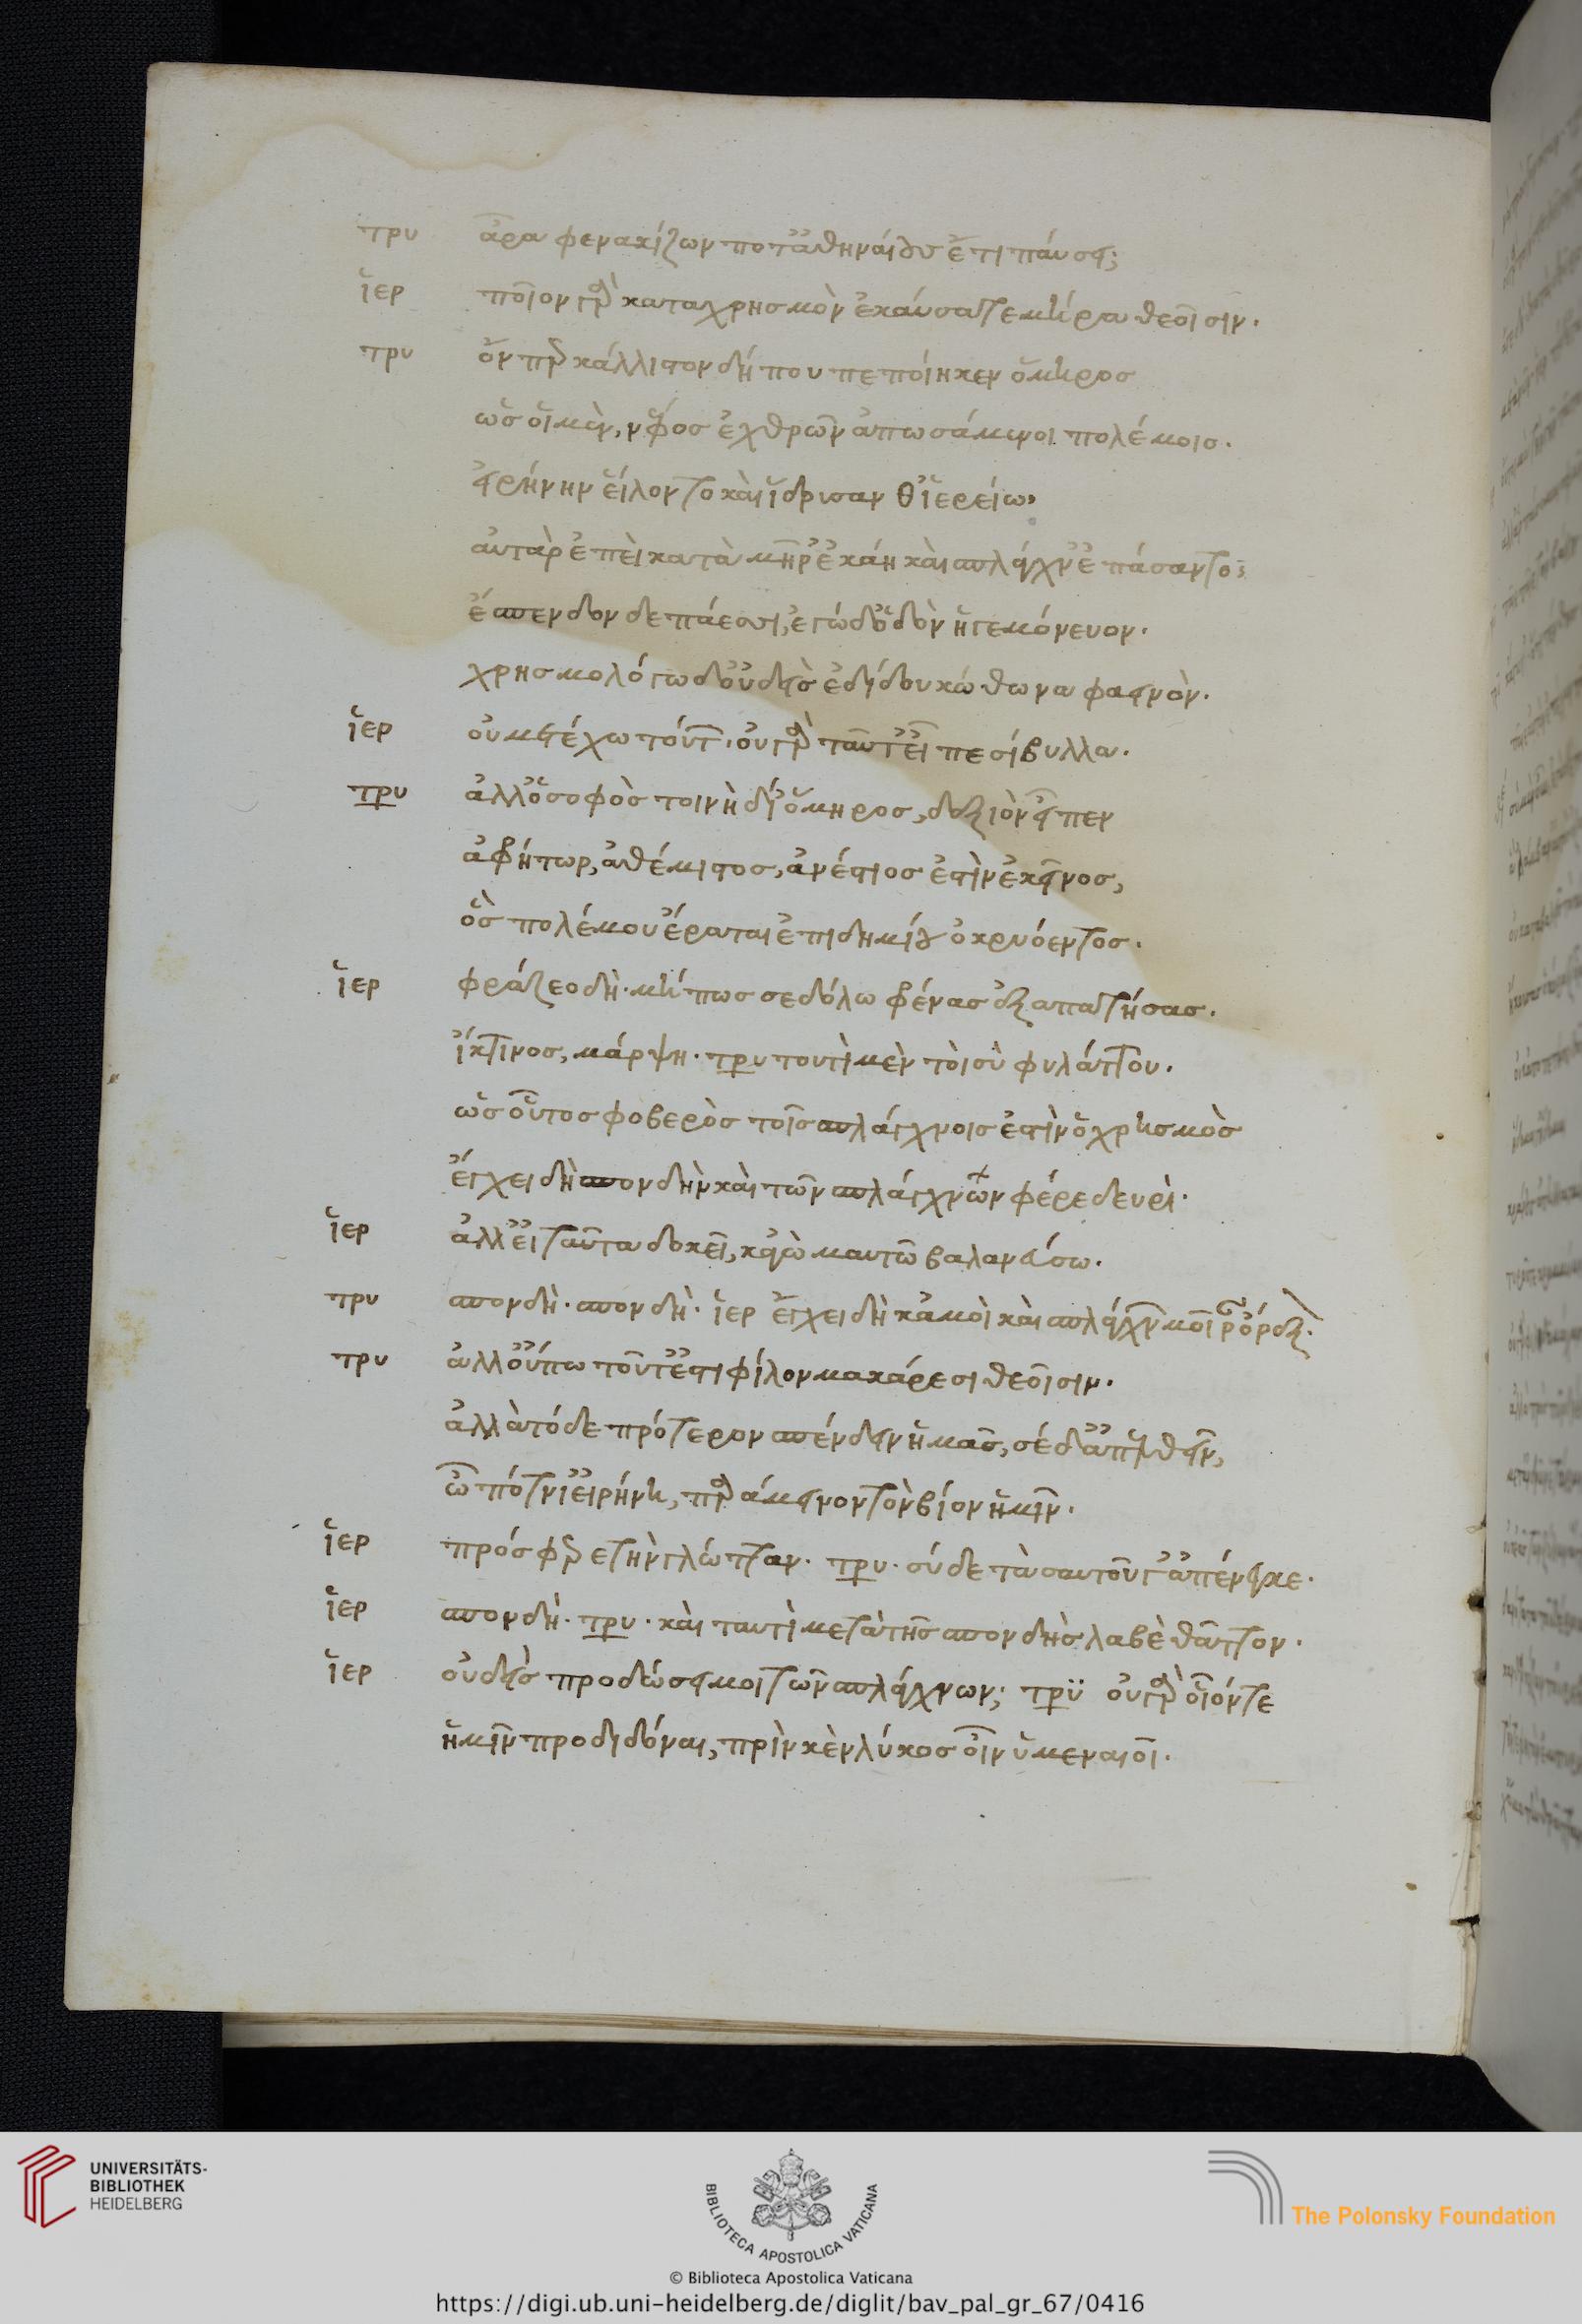 τρυ ἆρα φενακίζων ποτ' ἀθηναίους ἔτι παύσει;
ἱερ ποῖον γὰρ κατὰ χρησμὸν ἐκαύσατε μῆρα θεοῖσιν.
τρυ ὅνπερ κάλλιστον δήπου πεποίηκεν ὅμηρος
ὡς οἱ μὲν, νέφος ἐχθρῶν ἀπωσάμενοι πολέμοιο.
εἰρήνην εἵλοντο καὶ ἵδρυσαν θ' ἱερείω,
αὐτὰρ ἐπεὶ κατὰ μῆρ' ἐκάη καὶ σπλάγχν' ἐπάσαντο;
ἔσπενδον δεπάεσσι, ἐγὼ δ' ὁδὸν ἡγεμόνευον.
χρησμολόγω δ' οὐδεὶς ἐδίδου κώθωνα φαεινὸν.
ἱερ οὐ μετέχω τούτων. οὐ γὰρ ταῦτ' εἶπε σίβυλλα.
τρυ ἀλλ' ὁ σοφὸς τοι νὴ δί' ὅμηρος, δεξιὸν εἶπεν
ἀφρήτωρ, ἀθέμιστος, ἀνέστιος ἐστὶν ἐκεῖνος,
ὃς πολέμου ἔραται ἐπιδημίου ὀκρυόεντος.
ἱερ φράζεο δὴ. μή πως σε δόλω φρένας ἐξαπατήσας.
ἰκτῖνος, μάρψη. τρυ τουτὶ μὲν τοι σὺ φυλάττου.
ὡς οὗτος φοβερὸς τοῖς σπλάγχνοις ἐστὶν ὁ χρησμὸς
ἔγχει δὴ σπονδὴν καὶ τῶν σπλάγχνων φέρε δευρὶ.
ἱερ ἀλλ' εἰ ταῦτα δοκεῖ, κἀγὼ μαυτῶ βαλανεύσω.
τρυ σπονδὴ. σπονδὴ. ἱερ ἔγχει δὴ κἀμοὶ καὶ σπλάγχνων μοῖραν ὄρεξον.
τρυ ἀλλ' οὔπω τοῦτ' ἔστι φίλον μακάρεσι θεοῖσιν.
ἀλλὰ τόδε πρότερον σπένδειν ἡμᾶς, σὲ δ' ἀπελθεῖν,
ὦ πότνι' εἰρήνη, παράμεινον τὸν βίον ἡμῖν.
ἱερ πρόσφερε τὴν γλῶτταν. τρυ. σὺ δὲ τὰ σαυτοῦ γ' ἀπένεγκε.
ἱερ σπονδὴ. τρυ. καὶ ταυτὶ μετὰ τῆς σπονδῆς λαβὲ θᾶττον.
ἱερ οὐδεὶς προδώσει μοι τῶν σπλάγχνων; τρυ οὐ γὰρ οἷόν τε
ἡμῖν προδιδόναι, πρὶν κὲν λύκος οἶν ὑμεναιοῖ.
UNIVERSITÄTS-
BIBLIOTHEK
HEIDELBERG
BIBLIOTECA APOSTOLICA VATICANA
The Polonsky Foundation
© Biblioteca Apostolica Vaticana
https://digi.ub.uni-heidelberg.de/diglit/bav_pal_gr_67/0416